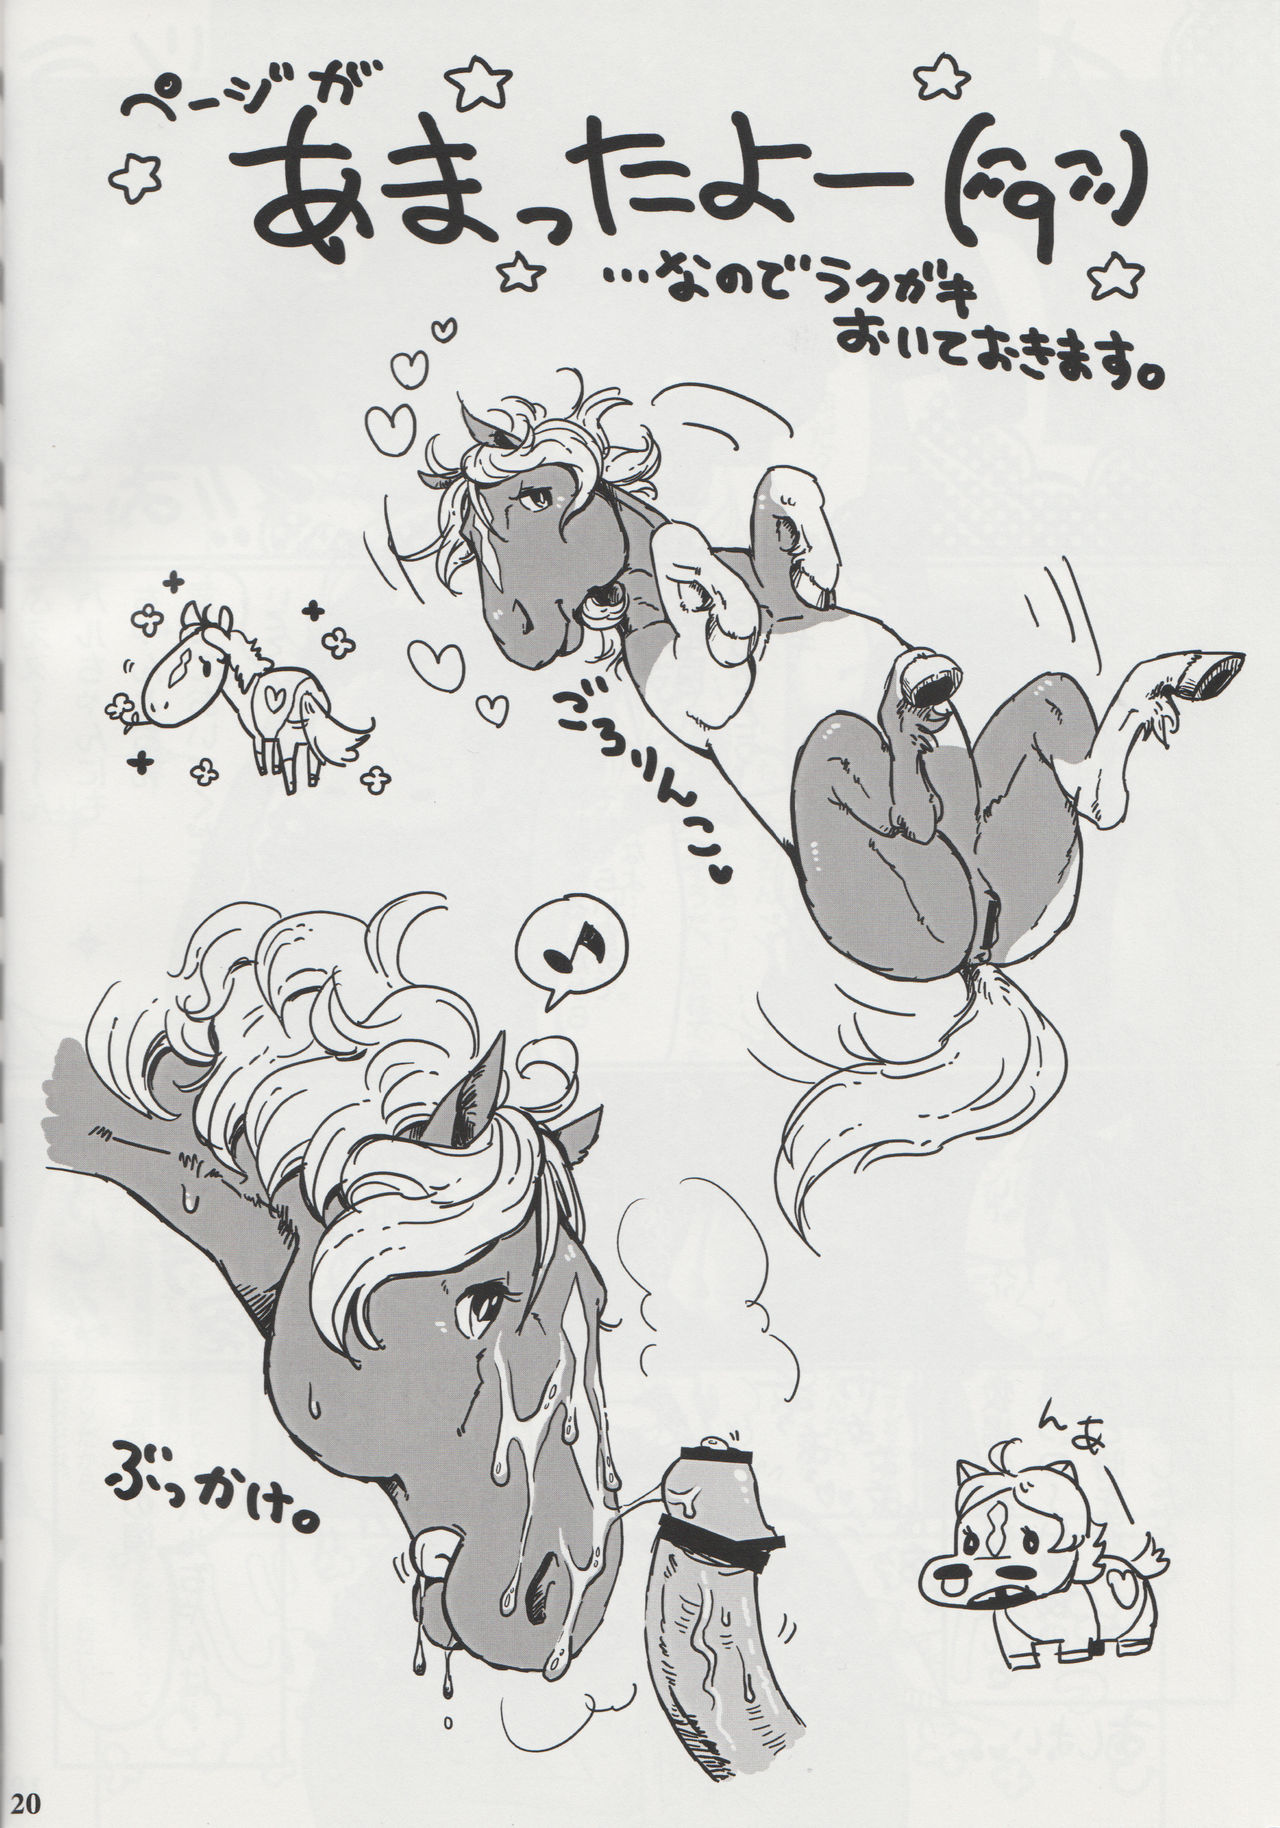 ページが
あまったよー(^q^)
…なのでラクガキ
おいておきます。
ごろりんこ♥
ぶっかけ。
んあ
20